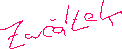 Začátek